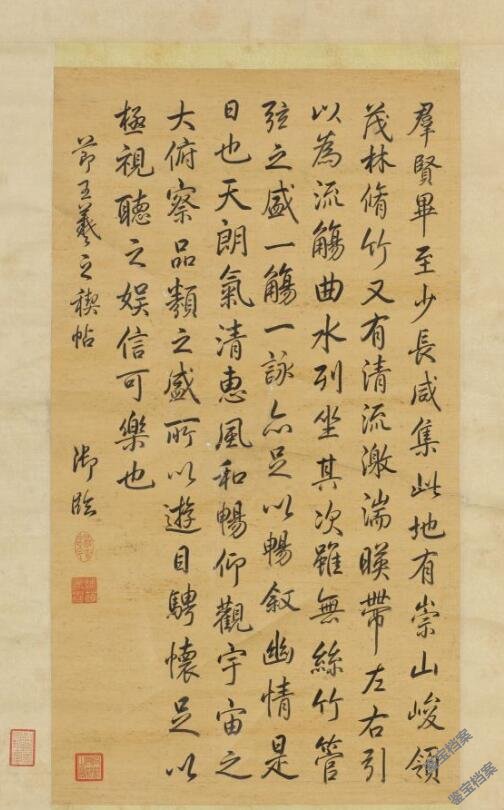 羣賢畢至少長咸集此地有崇山峻領
茂林脩竹又有清流激湍暎帶左右引
以為流觴曲水列坐其次雖無絲竹管
弦之盛一觴一詠亦足以暢敘幽情是
日也天朗氣清惠風和暢仰觀宇宙之
大俯察品類之盛所以遊目騁懷足以
極視聽之娛信可樂也
節王羲之禊帖 御臨
鉴宝档案
鉴宝档案